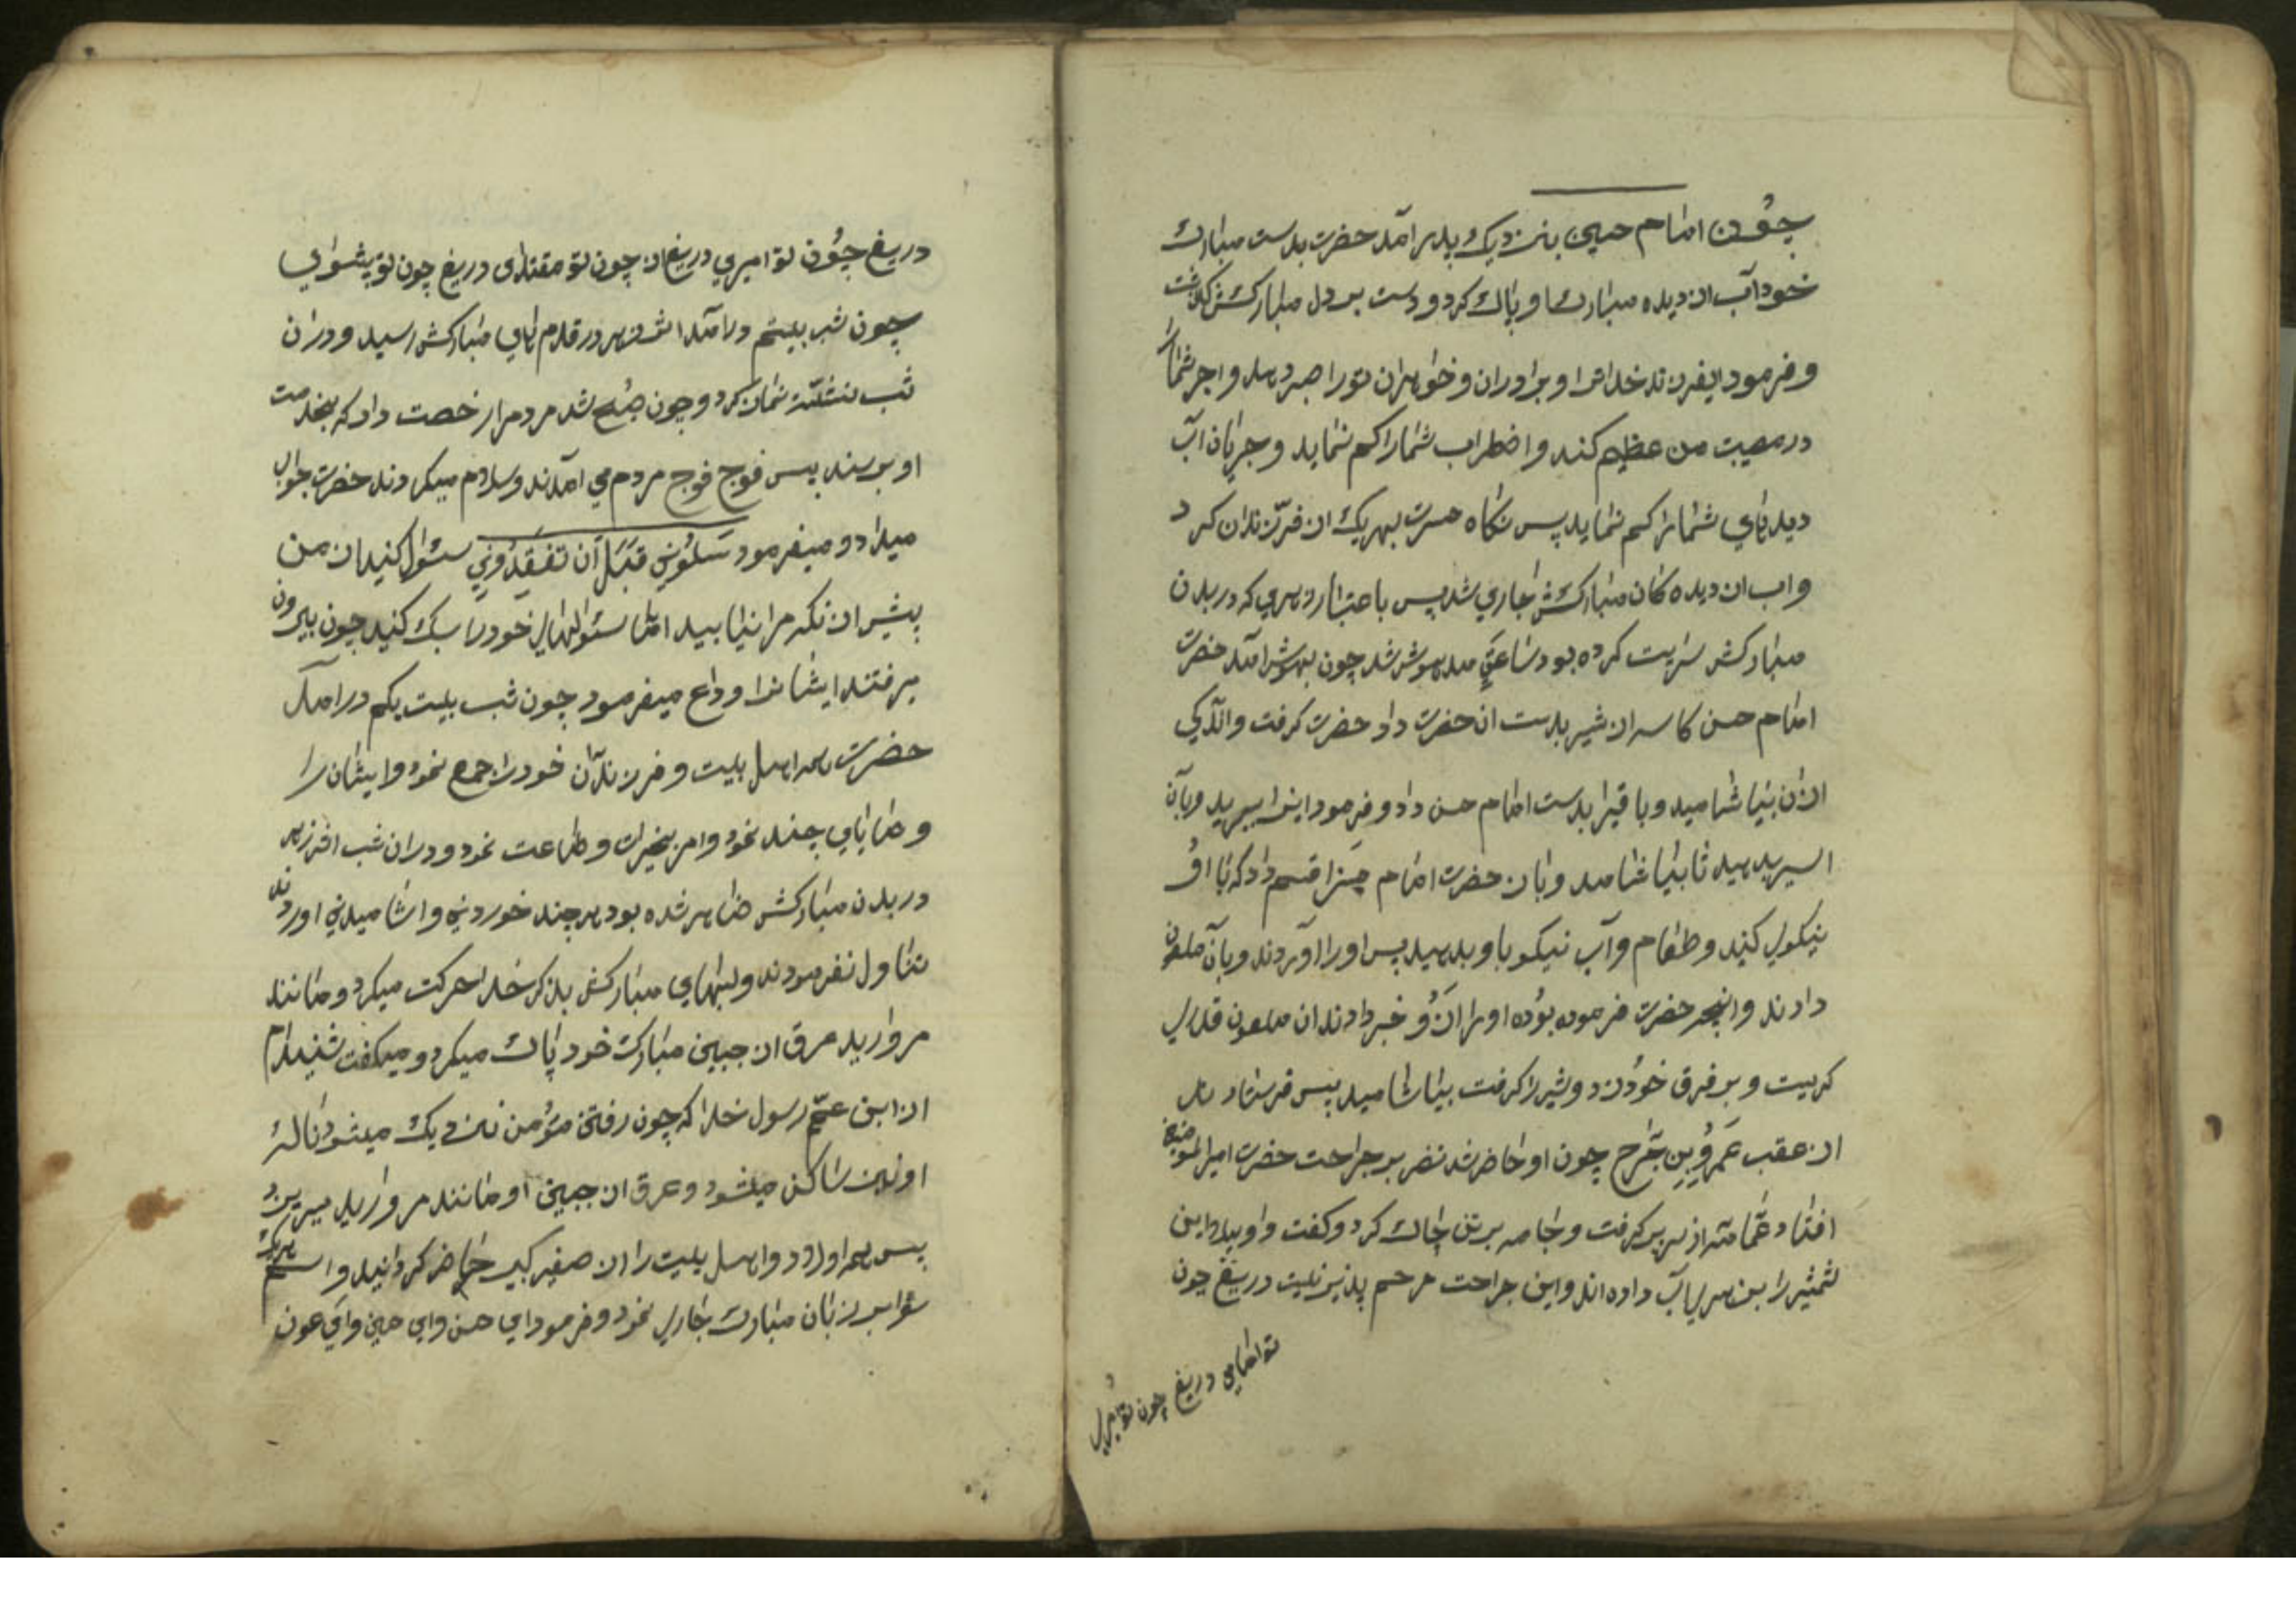 چون امام حسین بنزدیک پدر آمد حضرت بدست مبارک
خود آب از دیده مبارک او پاک کرد و دست بر دل مبارکش گذاشت
و فرمود ایفرزند خدا ترا و برادران و خواهران تو را صبر دهد و اجر شما را
در مصیبت من عظیم کند و اضطراب شما را کم نماید و جریان آب
دیدهای شما را کم نماید پس نگاه حسرت بهر یک از فرزندان کرد
و اب از دیده کان مبارکش جاری شد پس باعتبار زهری که در بدن
مبارکش سرایت کرده بود ساعتی مدهوش شد چون بهوش آمد حضرت
امام حسن کاسه از شیر بدست ان حضرت داد حضرت کرفت و اندکی
از ان بیاشامید و باقیرا بدست امام حسن داد و فرمود اینرا ببرید و بآن
اسیر بدهید تا بیاشامد و بان حضرت امام حسنرا قسم داد که با او
نیکوی کنید و طعام و آب نیکو باو بدهید پس او را آوردند و بآن ملعون
دادند و انچه حضرت فرموده بوده او را از او خبر دادند ان ملعون قدری
کریست و بر فرق خود زد و شیر را کرفت بیاشامید پس فرستاد
از عقب عمرو بن جراح چون او حاضر شد نضر بر جراحت حضرت امیرالمؤمنین
افتاد عمامه از سر بر کرفت و جامه بر تن چاک کرد و کفت واویلا این
شمشیر را بزهر یاب داده اند و این جراحت مرحم پذیر نیست دریغ چون
تو امامی دریغ چون تو
دریغ چون تو امیری دریغ از چون تو مقتدای دریغ چون تو پیشوای
چون شب بیستم درآمد اثر زهر در قدم های مبارکش رسید و دران
شب نشسته نماز کرد و چون صبح شد مردم را رخصت داد که بخدمت
او برسند پس فوج فوج مردم می آمدند و سلام میکردند حضرت جواب
میداد و میفرمود سَلُونی قَبلَ اَن تَفقِدُونی سئوال کنید از من
پیش از نکه مرا نیابید اما سئوالهای خود را سبک کنید چون بیرون
میرفتند ایشانرا وداع میفرمود چون شب بیست یکم درامد
حضرت همه اهل بیت و فرزندان خود را جمع نمود و ایشان را
وصایای چند نمود و امر بخیرات و طاعت نمود و دران شب اثر زهر
در بدن مبارکش ضاهر شده بود هر چند خوردنی و اشامیدنی اوردند
تناول نفرمودند و لبهای مبارکش بذکر خدا حرکت میکرد و مانند
مروارید عرق از جبین مبارک خود پاک میکرد و میکفت شنیدم
از ابن عم رسول خدا که چون رفتن مؤمن نزدیک میشود ناله
او ساکن میشود و عرق از جبین او مانند مروارید میریزد
پس همه اولاد و اهل بیت را از صغیر کبیر حاضر کردانید و اسم هریک
را بر زبان مبارک جاری نمود و فرمود ای حسن وای حسین وای عون